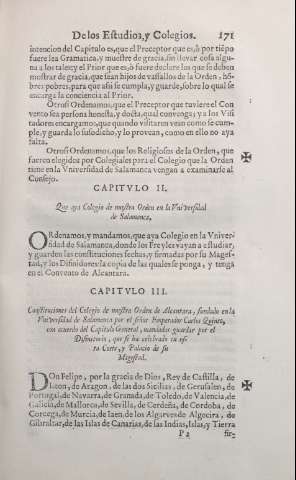 De los Estudios, y Colegios. 171
intencion del Capitulo es, que el Preceptor que es, ò por tiẽpo
fuere lea Gramatica, y muestre de gracia, sin llevar cosa algu-
na a los tales: y el Prior que es, ò fuere declare los que se deben
mostrar de gracia, que sean hijos de vassallos de la Orden, hõ-
bres pobres, para que assi se cumpla, y guarde, sobre lo qual se
encarga la conciencia al Prior.
Otrosi Ordenamos, que el Preceptor que tuviere el Con
vento sea persona honesta, y docta, qual convenga; y a los Visi
tadores encargamos, que quando visitaren vean como se cum-
ple, y guarda lo susodicho, y lo provean, como en ello no aya
falta.
Otrosi Ordenamos, que los Religiosos de la Orden, que
fueren elegidos por Colegiales para el Colegio que la Orden
tiene en la Vniversidad de Salamanca vengan a examinarse al
Consejo.
CAPITVLO II.
Que aya Colegio de nuestra Orden en la Vniversidad
de Salamanca.
ORdenamos, y mandamos, que aya Colegio en la Vniver-
sidad de Salamanca, donde los Freyles vayan a estudiar,
y guarden las constituciones fechas, y firmadas por su Mages-
tad, y los Difinidores: la copia de las quales se ponga, y tenga
en el Convento de Alcantara.
CAPITVLO III.
Constituciones del Colegio de nuestra Orden de Alcantara, fundado en la
Vniversidad de Salamanca por el señor Emperador Carlos Quinto,
con acuerdo del Capitulo General, mandadas guardar por el
Difinitorio, que se ha celebrado en es-
ta Corte, y Palacio de su
Magestad.
DOn Felipe, por la gracia de Dios, Rey de Castilla, de
Leon, de Aragon, de las dos Sicilias, de Gerusalen, de
Portugal, de Navarra, de Granada, de Toledo, de Valencia, de
Galicia, de Mallorca, de Sevilla, de Cerdeña, de Cordoba, de
Corcega, de Murcia, de Iaen, de los Algarves de Algecira, de
Gibraltar, de las Islas de Canarias, de las Indias, Islas, y Tierra
P 2 fir-